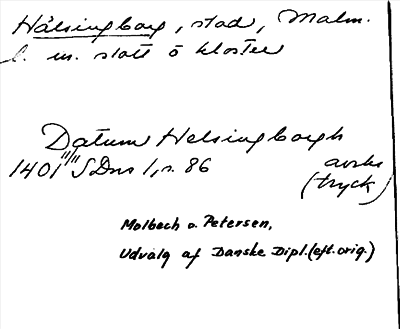 Hälsingborg, stad, Malm.
l. m. slott o kloster
Datum Helsingborgh
1401 11/11 SDns 1, s. 86 avskr
(tryck)
Molbech o. Petersen,
Udvalg af Danske Dipl. (eft. orig.)